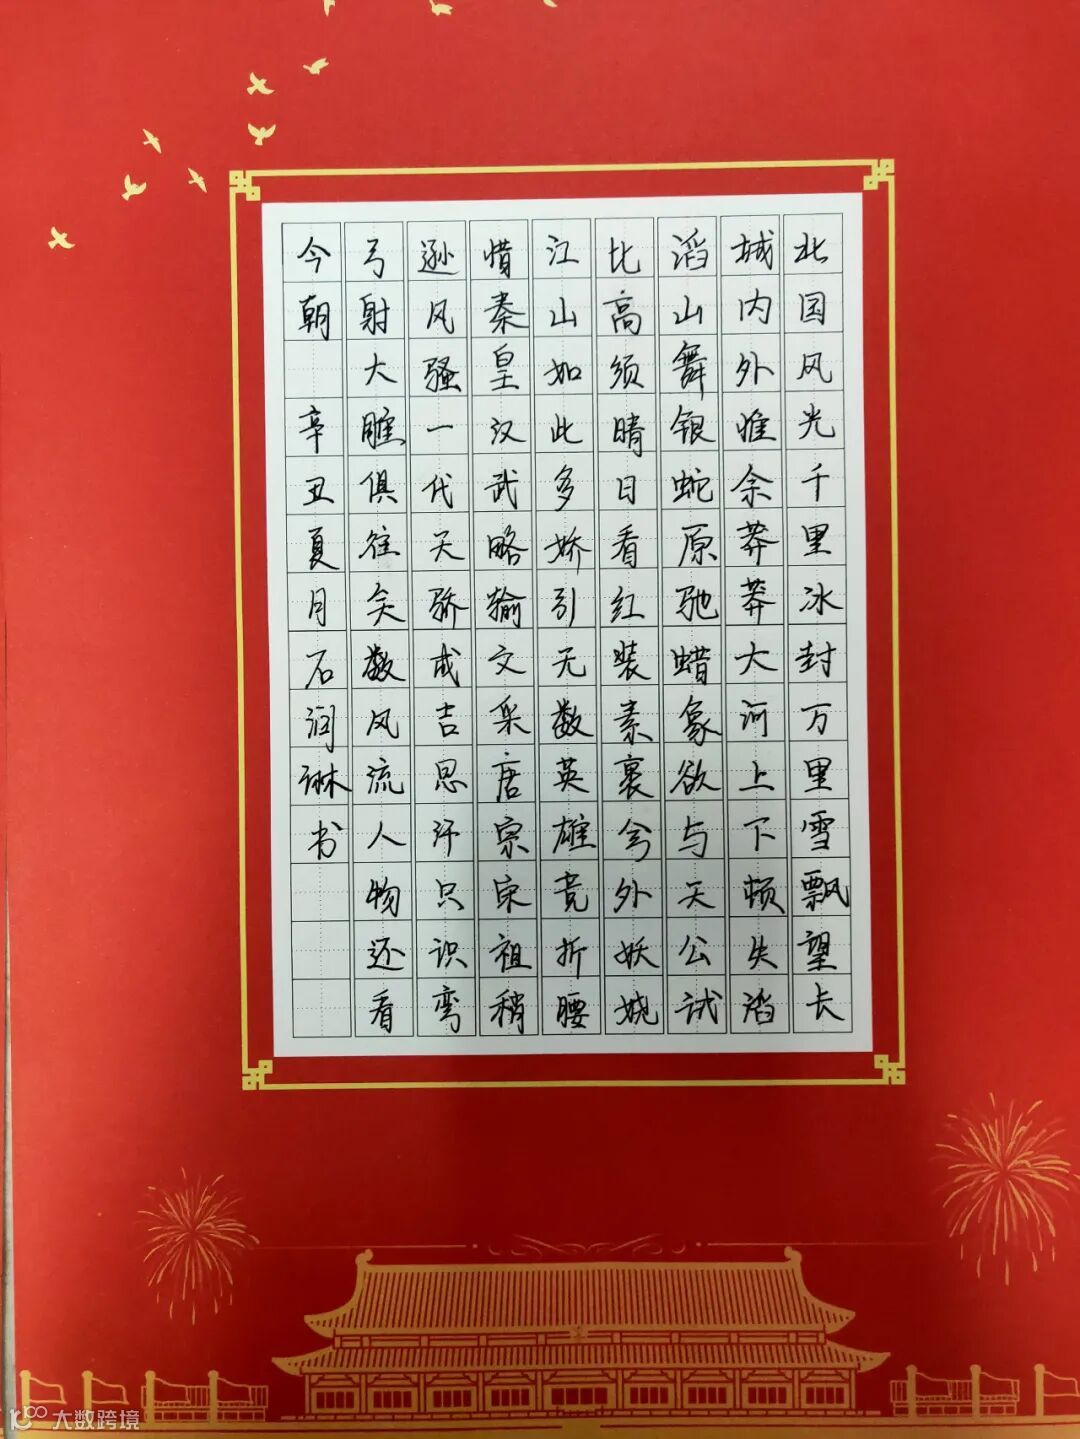 北国风光千里冰封万里雪飘望长
城内外惟余莽莽大河上下顿失滔
滔山舞银蛇原驰蜡象欲与天公试
比高须晴日看红装素裹分外妖娆
江山如此多娇引无数英雄竞折腰
惜秦皇汉武略输文采唐宗宋祖稍
逊风骚一代天骄成吉思汗只识弯
弓射大雕俱往矣数风流人物还看
今朝 辛丑夏月石润琳书
大数跨境